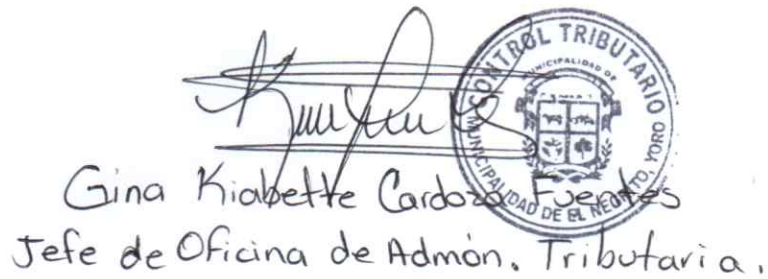 CONTROL TRIBUTARIO
MUNICIPALIDAD DE
MUNICIPALIDAD DE EL NEGRITO, YORO
Gina Kiabette Cardozo Fuentes
Jefe de Oficina de Admón. Tributaria.